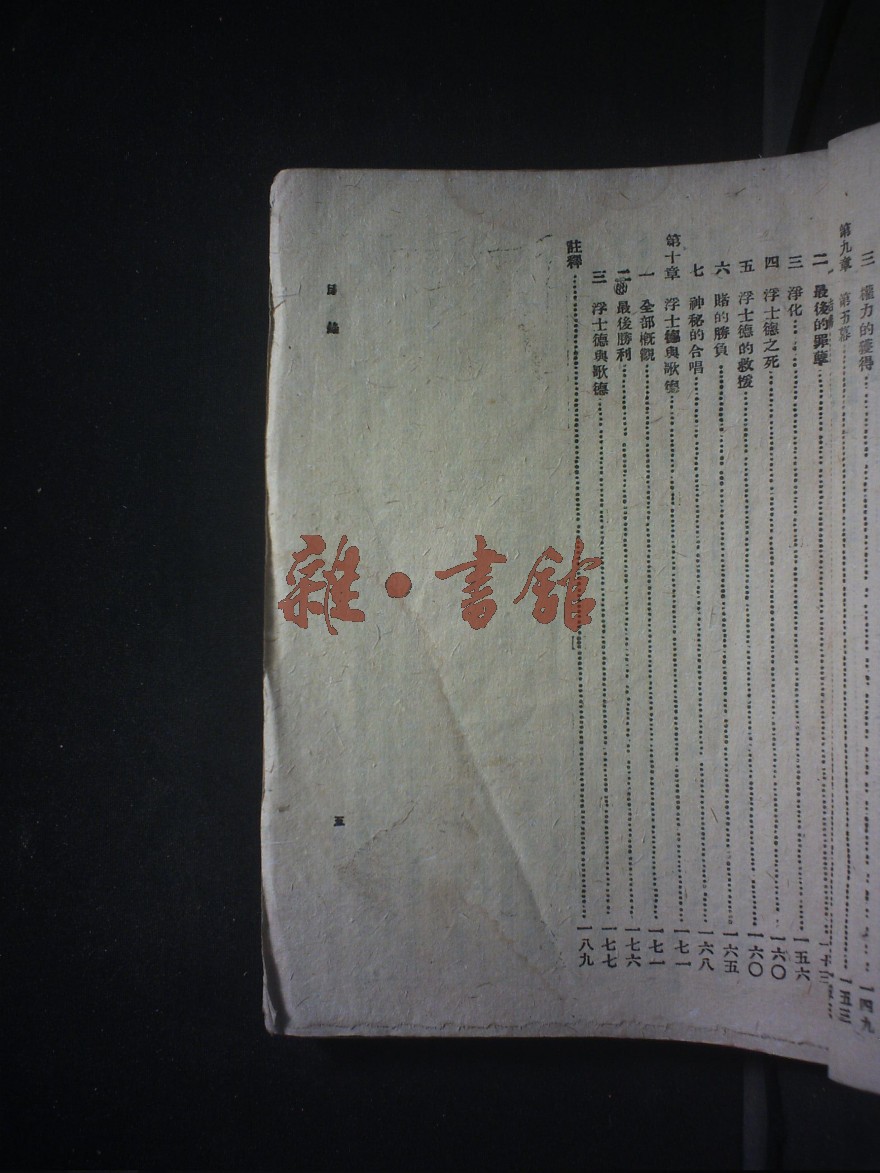 三 權力的獲得 一四九
第九章 第五幕 一五三
二 最後的罪孽
三 淨化 一五六
四 浮士德之死 一六〇
五 浮士德的救援 一六〇
六 賭的勝負 一六五
七 神秘的合唱 一六八
第十章 浮士德與歌德 一七一
一 全部概觀 一七一
二 最後勝利 一七六
三 浮士德與歌德 一七七
註釋 一八九
目錄
五
雜·書館